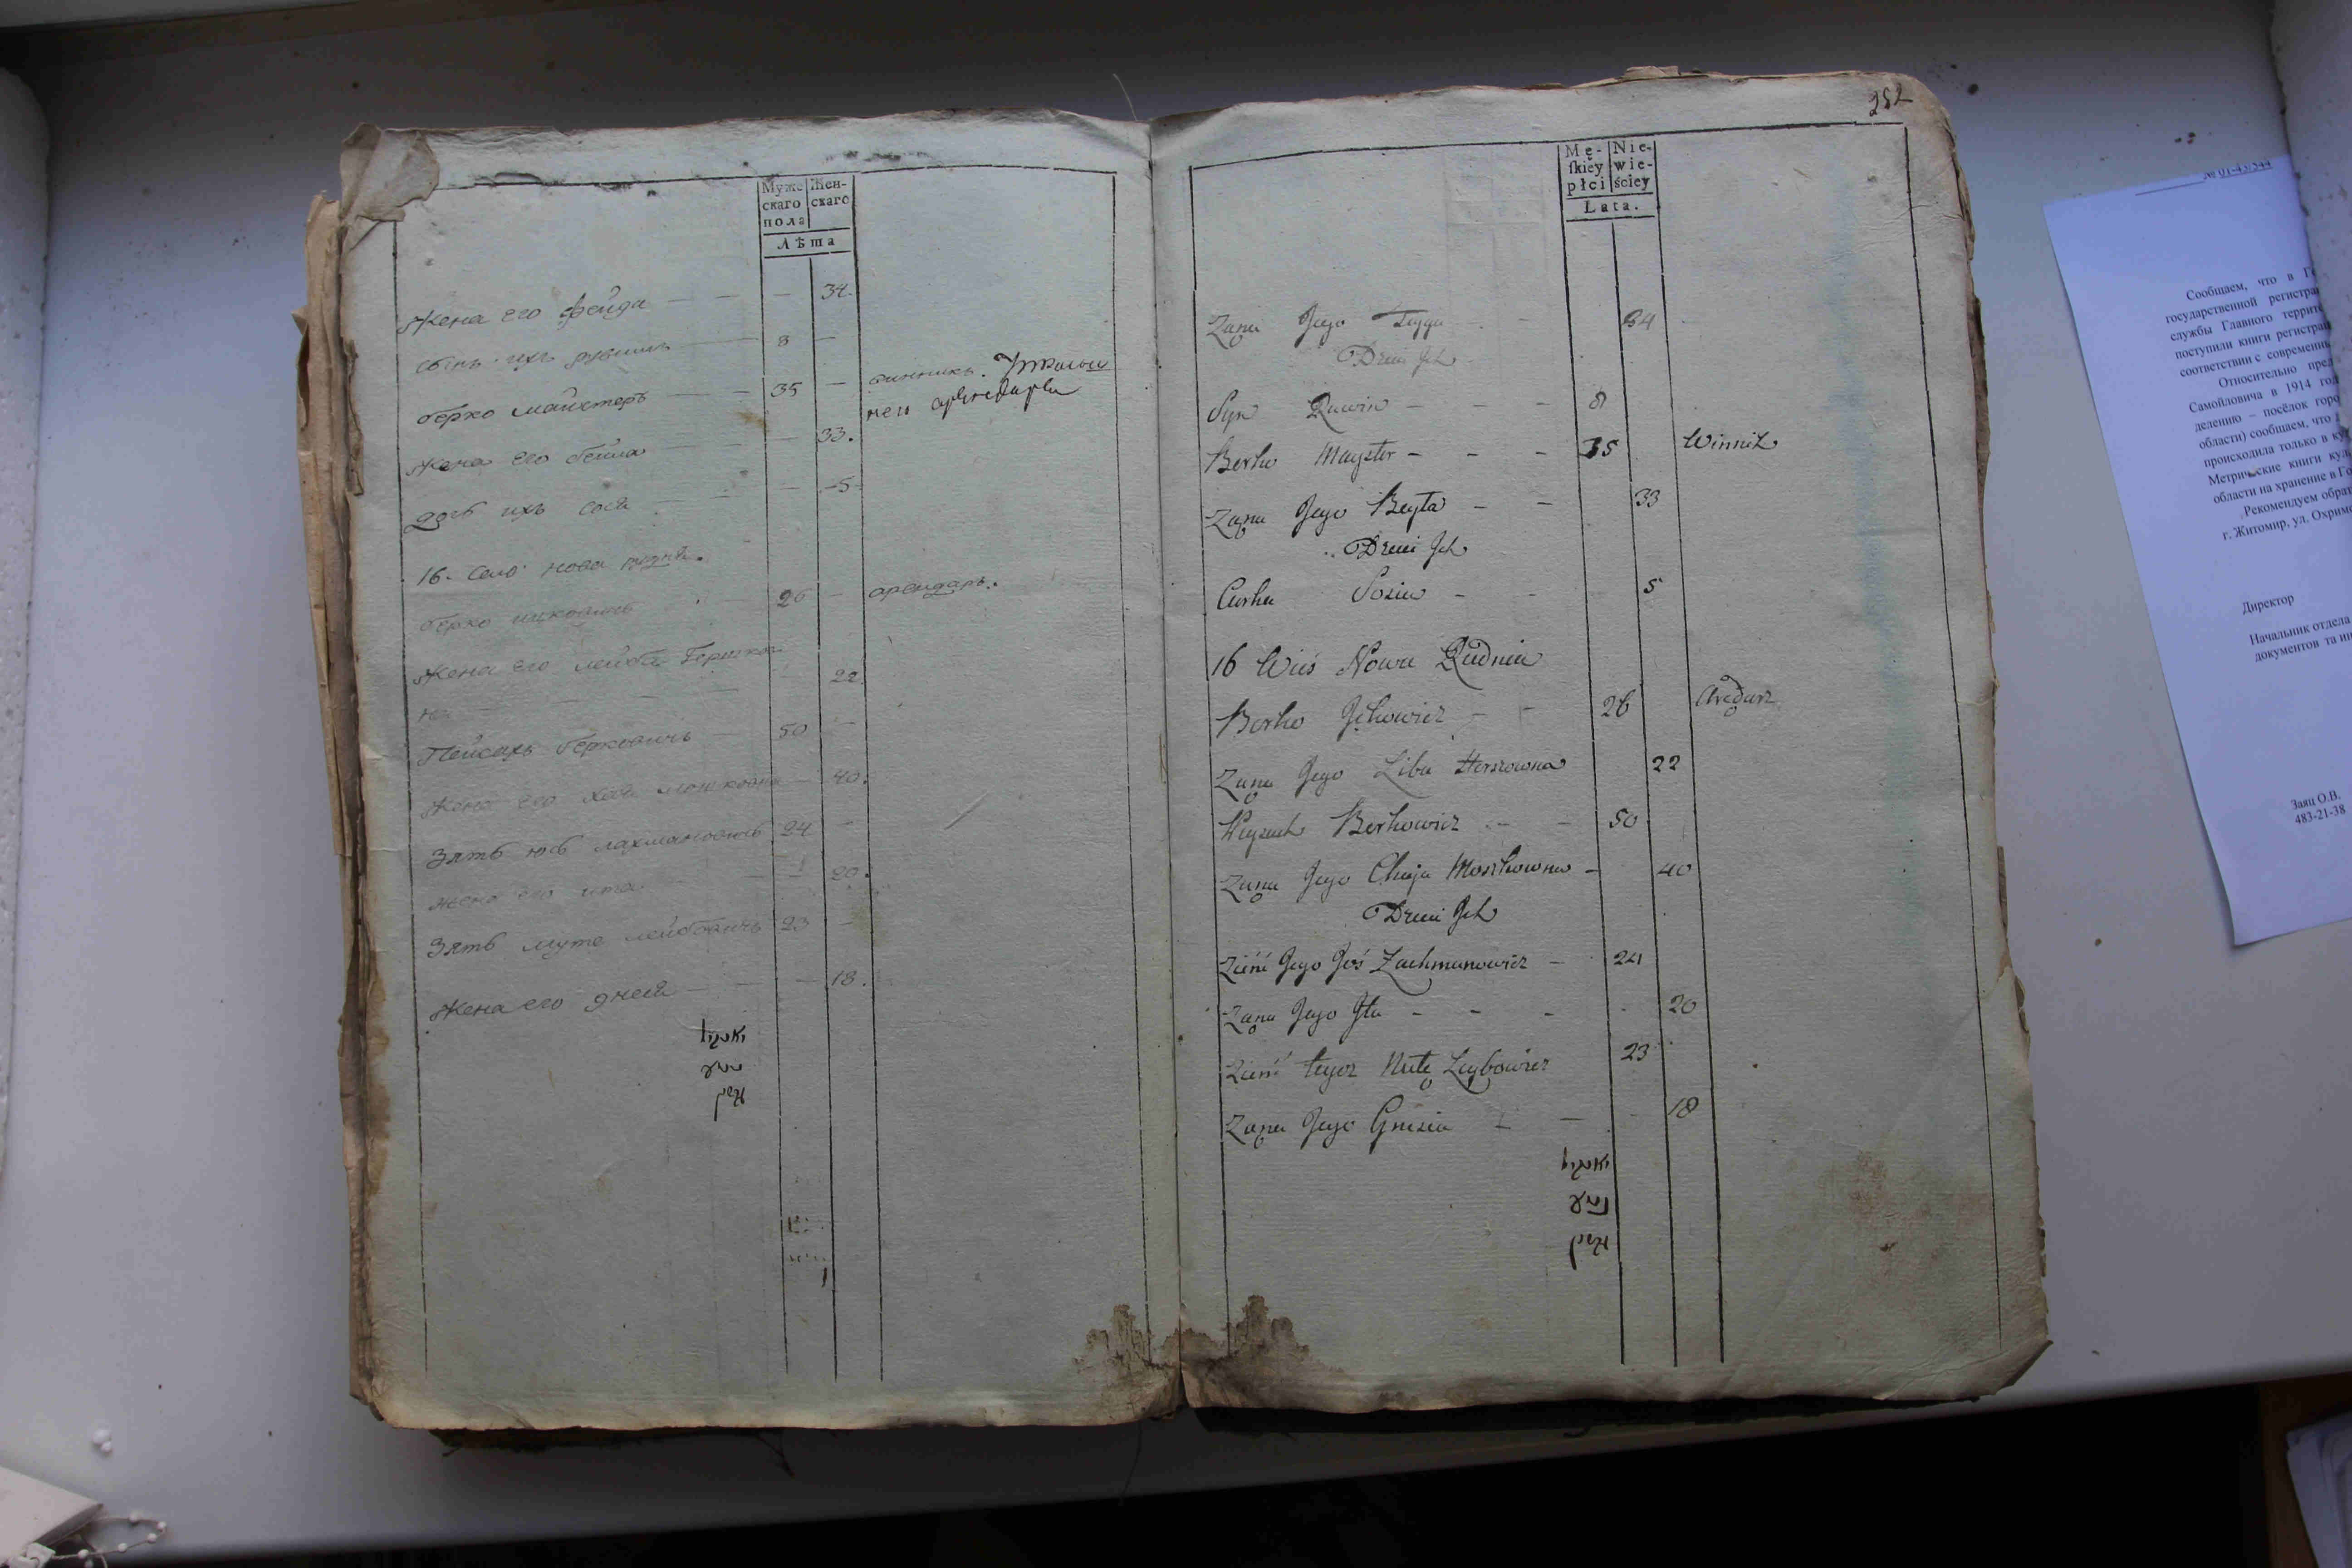 Муже
скаго
пола
Жен-
скаго
Лѣта
Жена его фейга — — — 34.
сынъ ихъ рувинъ — 8 —
берко майстеръ — — 35 — винникъ.
Жена его бейла — — 33.
дочь ихъ сося — — 5
16. Село нова рудня.
берко ицковичъ — 26 — арендарь.
Жена его лейба Гершков
на — — — 22.
Пейсахъ берковичъ — 50 —
Жена его хая мошковна — 40.
Зять юсь лахмановичъ 24 —
жена его ита — — 20.
Зять муте лейбовичъ 23 —
Жена его гнеся — — — 18.
282
Mę-
ſkiéy
płci
Nie-
wie-
ściey
Lata.
Zona Jego Fayga - - 34
Dzieci Ich
Syn Ruwin - - - 8
Berko Mayster - - - 35 Winnik
Zona Jego Beyła - - 33
Dzieci Ich
Curka Sosia - - 5
16 Wieś Nowa Rudnia
Berko Ickowicz - - 26 Arędarz
Zona Jego Liba Herszkowna 22
Peysach Berkowicz - - 50
Zona Jego Chaja Moszkowna - 40
Dzieci Ich
Zięć Jego Joś Lachmanowicz - 24
Zona Jego Ita - - - 20
Zięć tegoz Nutę Leybowicz 23
Zona Jego Gnesia - - - 18
№ 01-43/544
Сообщаем, что в
государственной
службы Главного
поступили книги
соответствии с
Относительно
Самойловича в 1914
делению – посёлок
области) сообщаем, что
происходила только в
Метрические книги
области на хранение в
Рекомендуем
г. Житомир, ул.
Директор
Начальник отдела
документов та
Заяц О.В.
483-21-38